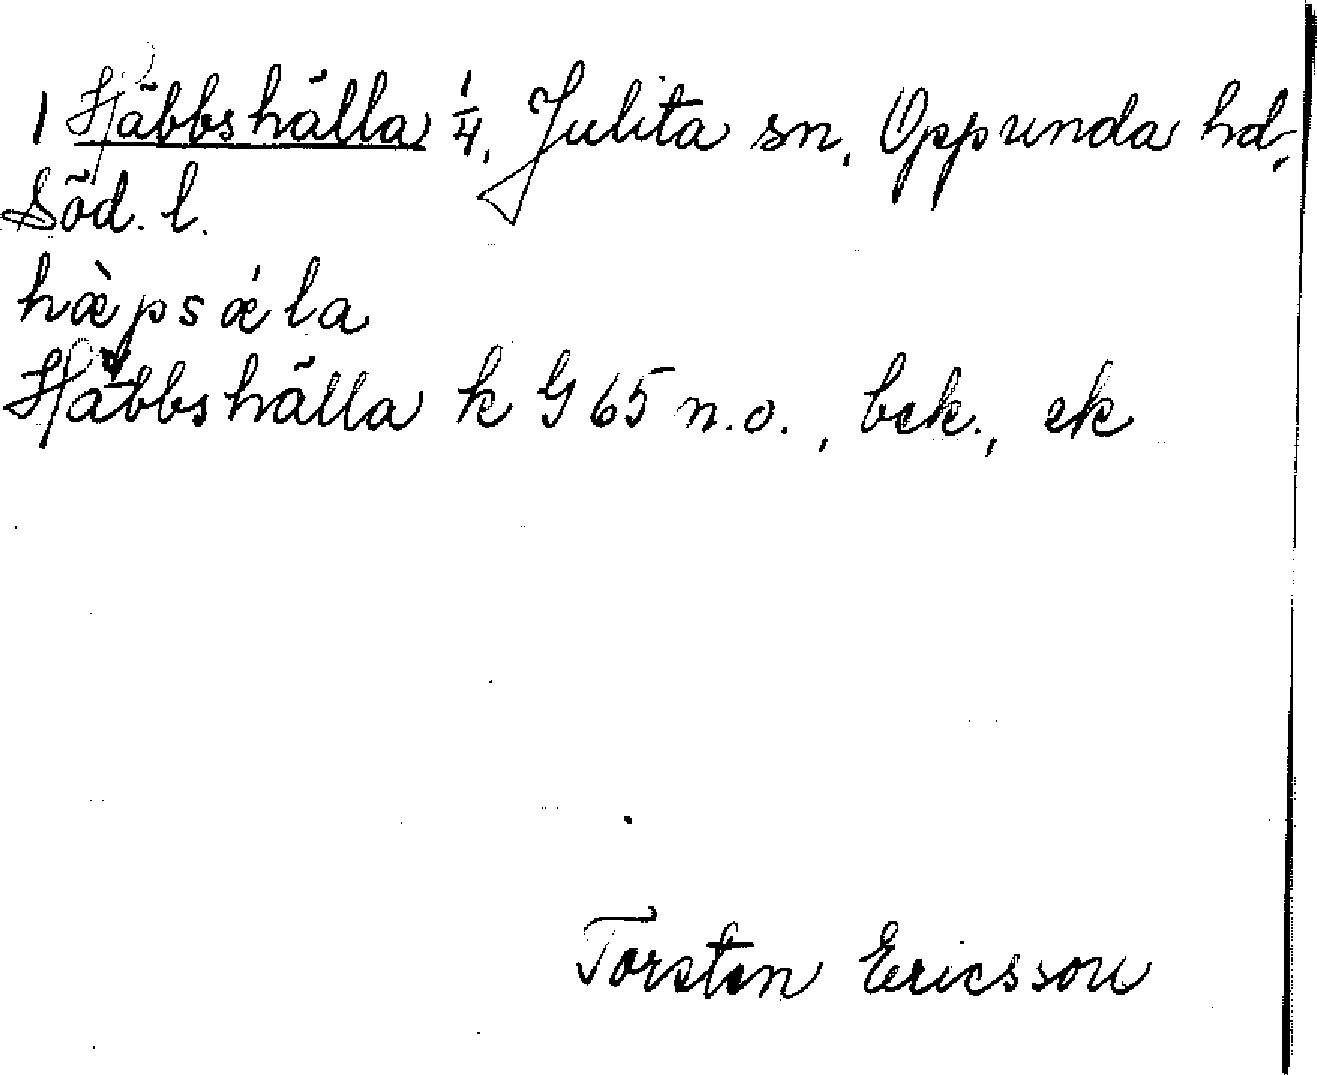 1 Häbbshälla 1/4, Julita sn, Oppunda hd,
Söd. l.
hæ̀psǽla
Häbbshälla k G 65 n.o., bek., ek
Torsten Ericsson